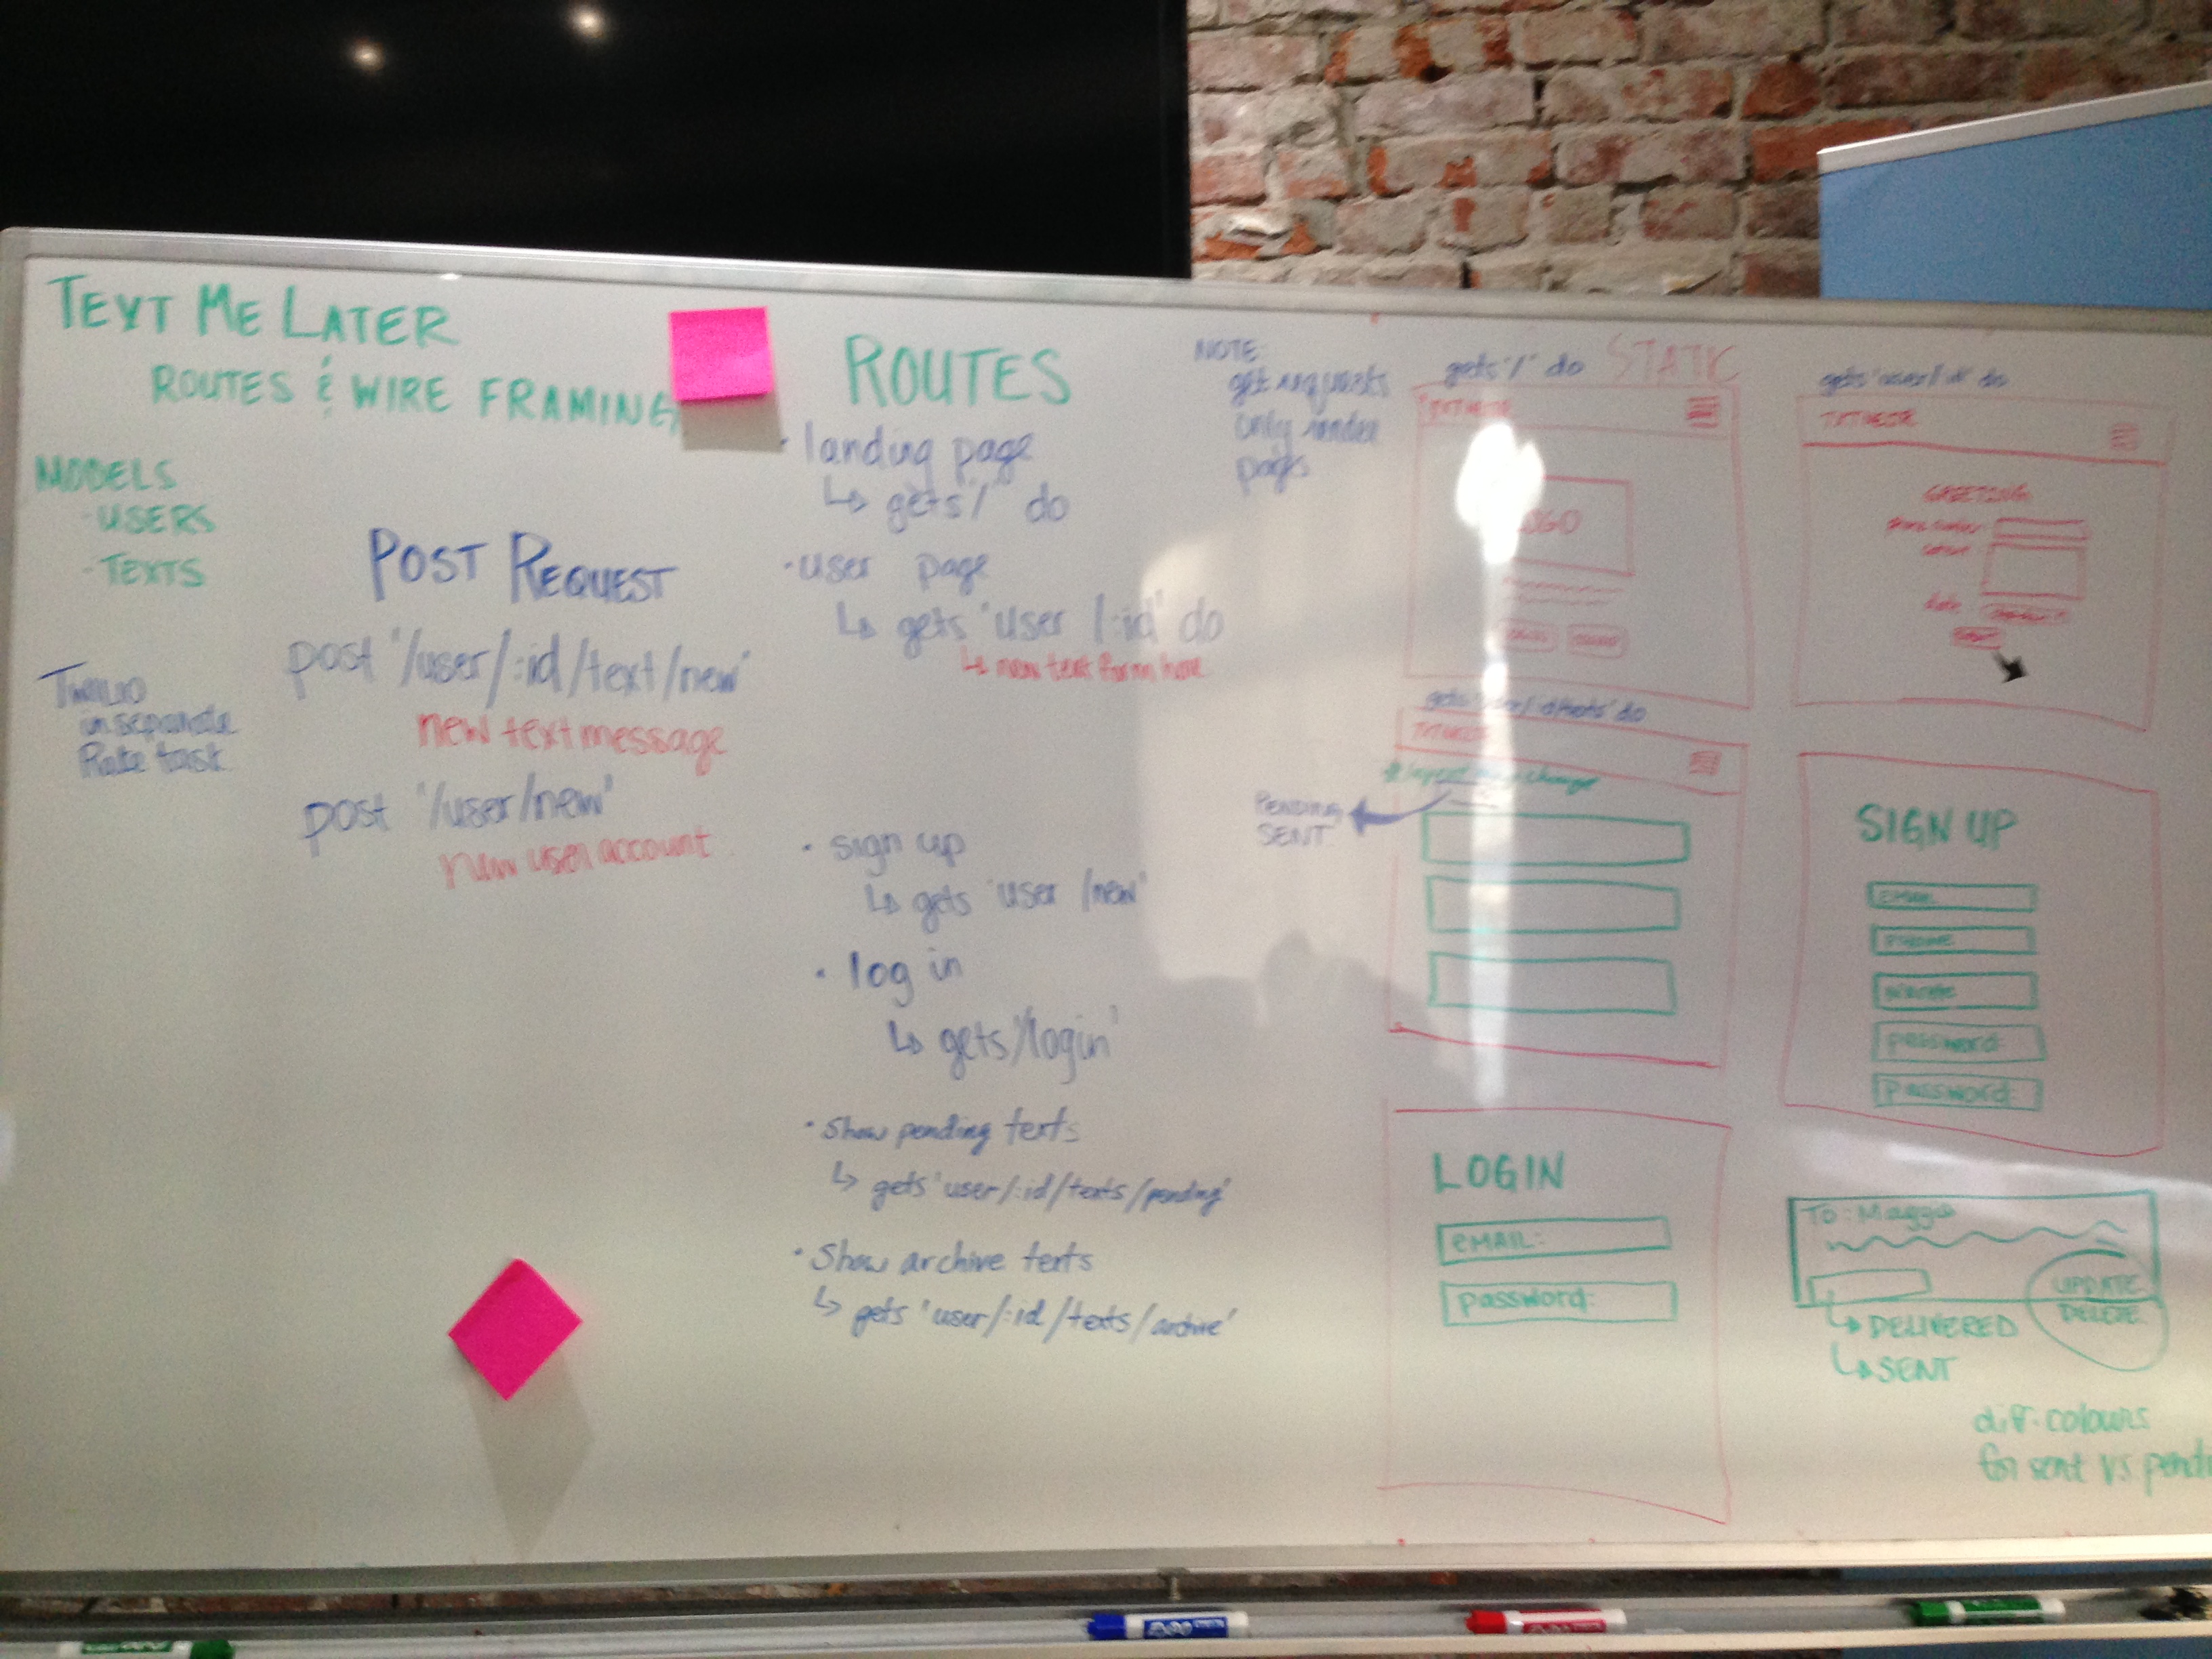 TEXT ME LATER
ROUTES & WIRE FRAMING
MODELS
·USERS
·TEXTS
TWILIO
in separate
Rake task
POST REQUEST
post '/user/:id/text/new'
new text message
post '/user/new'
new user account
ROUTES
· landing page
↳ gets '/' do
· user page
↳ gets 'user /:id' do
↳ new text form here
· sign up
↳ gets 'user /new'
· log in
↳ gets '/login'
· Show pending texts
↳ gets 'user/:id/texts/pending'
· Show archive texts
↳ gets 'user/:id/texts/archive'
NOTE:
get requests
only render
pages
gets '/' do STATIC
LOGO
gets 'user/:id' do
GREETING
phone number
date
gets 'user/:id/texts' do
change
PENDING
SENT
SIGN UP
EMAIL
PHONE
password:
password:
LOGIN
EMAIL:
password:
To: Maggie
UPDATE
DELETE
↳ DELIVERED
↳ SENT
diff. colours
for sent vs pendi